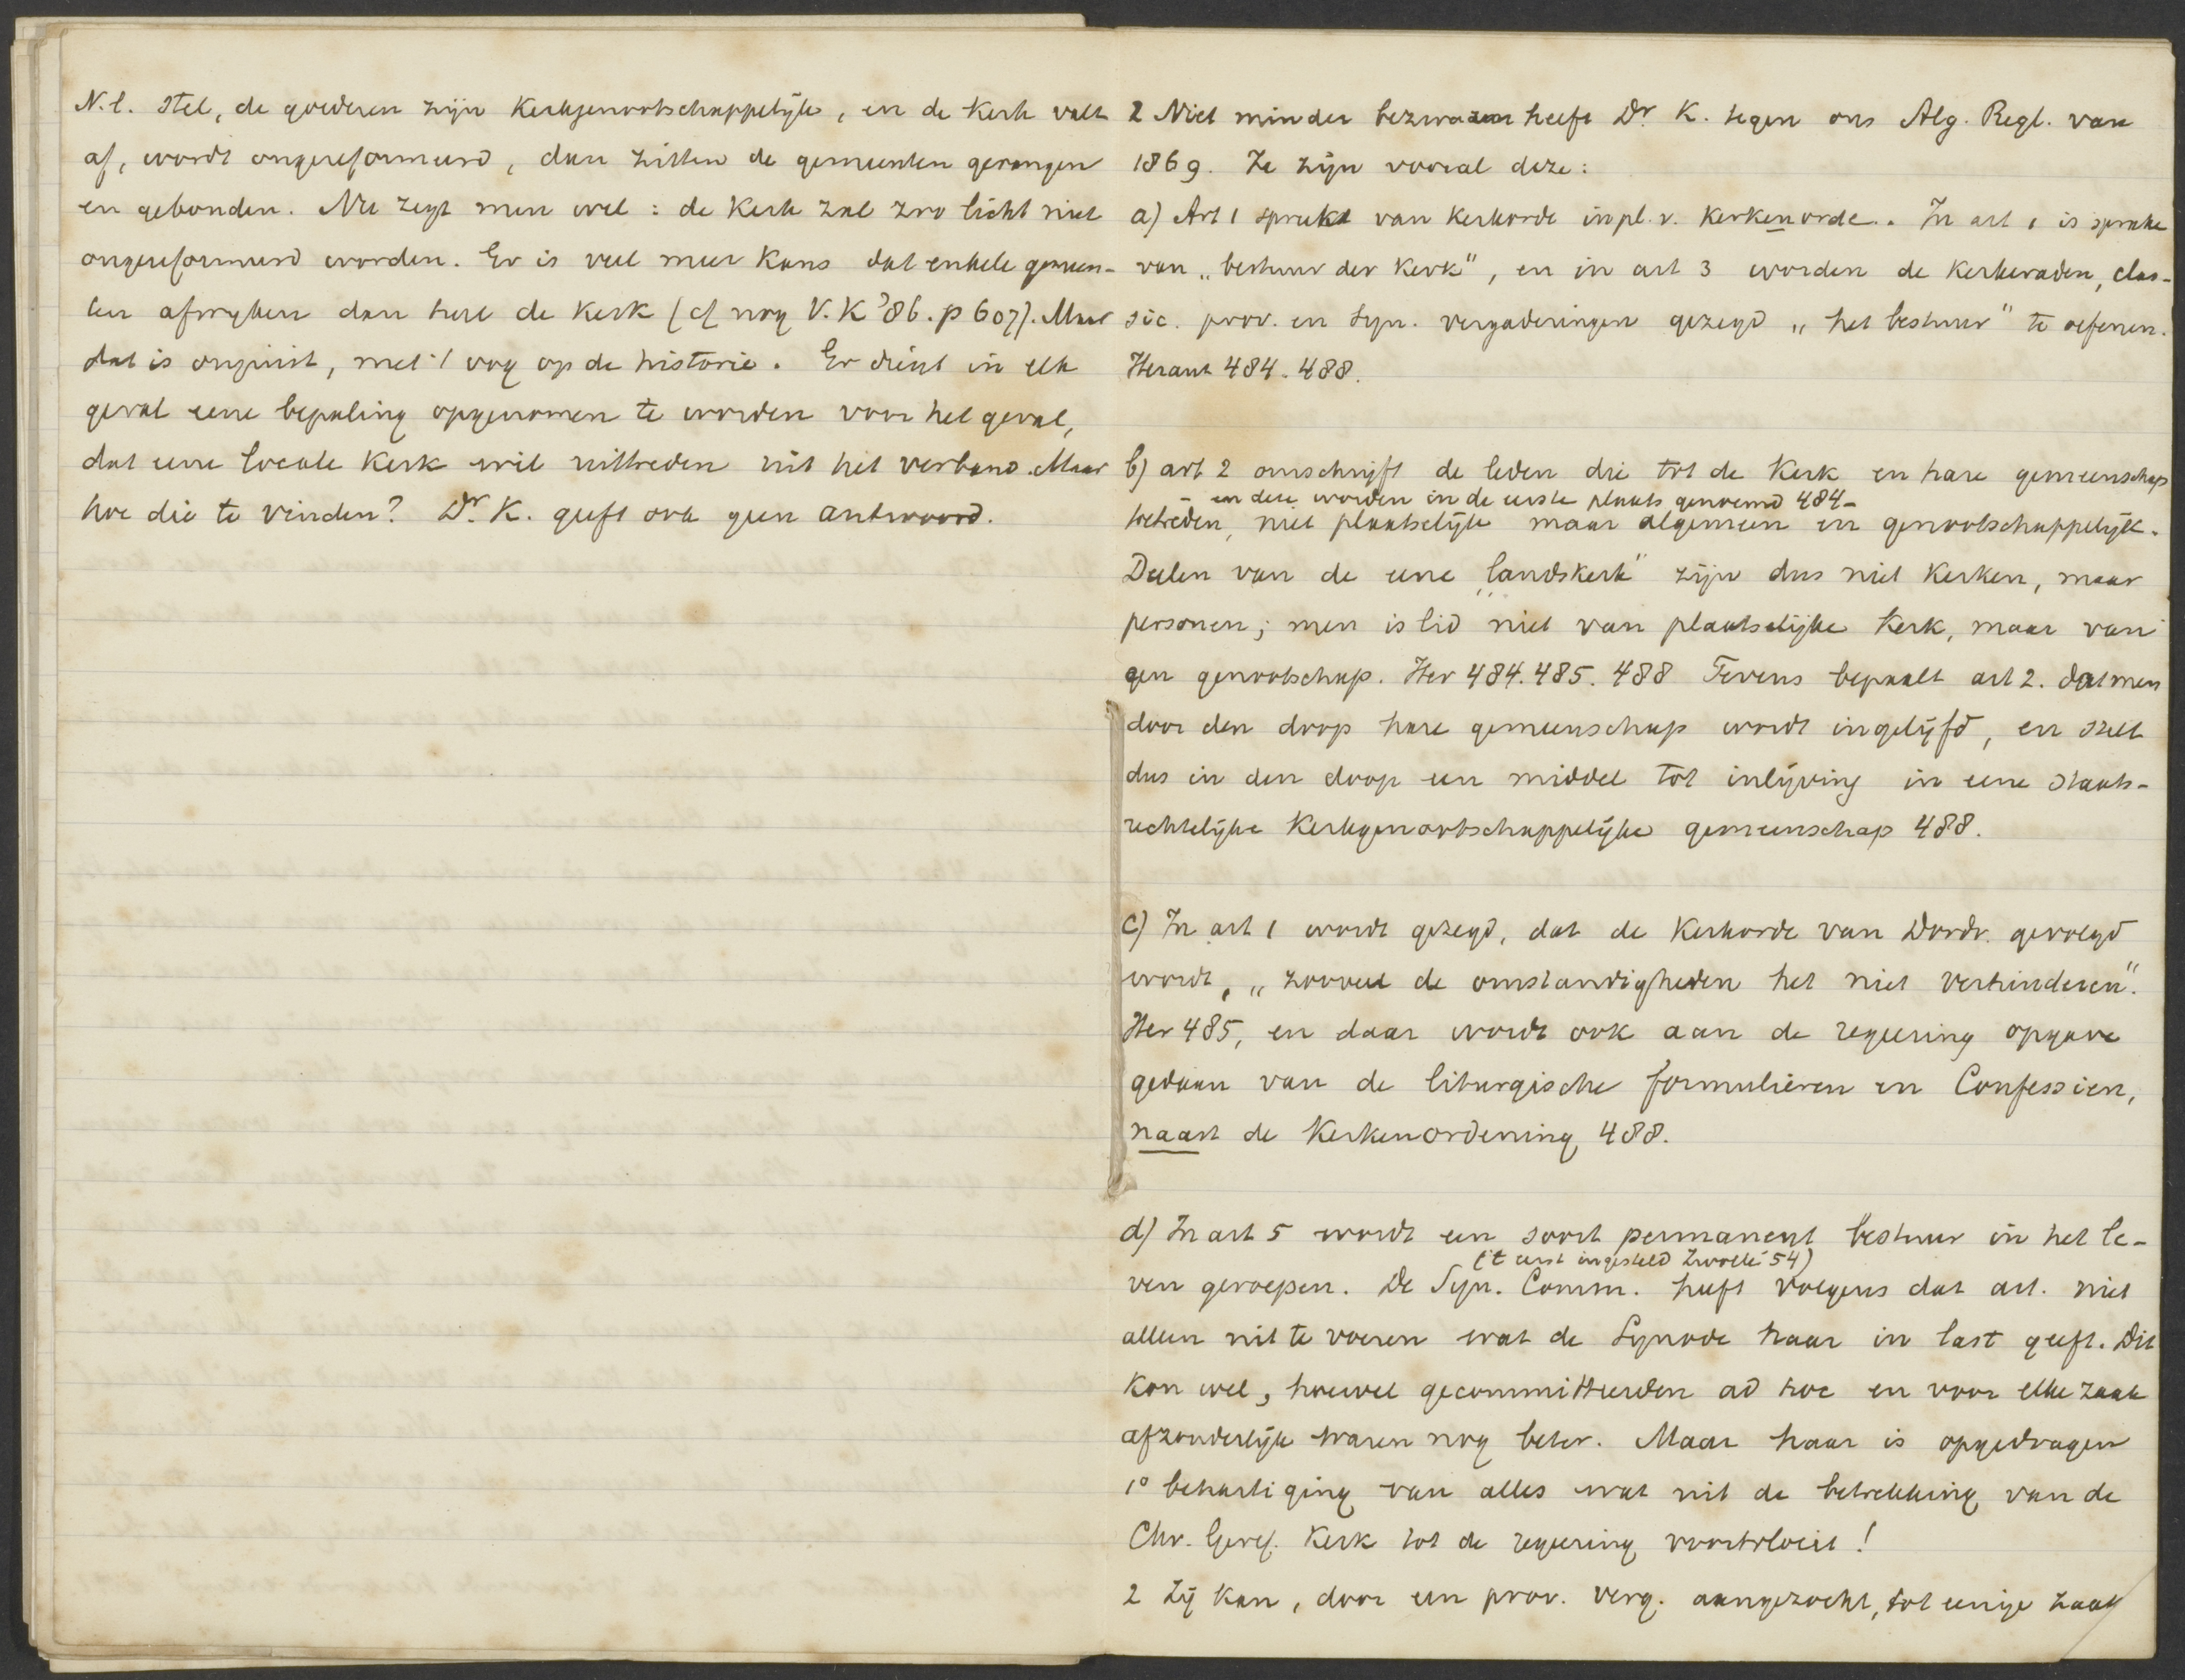 N.l. stel, de goederen zijn Kerkgenootschappelijk, en de Kerk valt
af, wordt ongereformeerd, dan zitten de gemeenten gevangen
en gebonden. Nu zegt men wel: de Kerk zal zoo licht niet
ongereformeerd worden. Er is veel meer Kans dat enkele gemeen-
ten afwyken dan heel de Kerk (cf nog V.K '86. p 607). Maar
dat is onjuist, met 't oog op de historie. Er dient in elk
geval eene bepaling opgenomen te worden voor het geval,
dat eene locale Kerk wil uittreden uit het verband. Maar
hoe die te vinden? Dr. K. geeft ook geen antwoord.
2 Niet minder bezwaren heeft Dr K. tegen ons Alg. Regl. van
1869. Ze zijn vooral deze:
a) Art 1 spreekt van Kerkorde in pl. v. Kerkenorde. In art 1 is sprake
van „bestuur der Kerk", en in art 3 worden de Kerkeraden, clas-
sic. prov. en Syn. vergaderingen gezegd „het bestuur" te oefenen.
Heraut 484. 488.
b) art 2 omschrijft de leden die tot de Kerk en hare gemeenschap
en deze worden in de eerste plaats genoemd 484-
betreden, niet plaatselijk maar algemeen en genootschappelijk.
Deelen van de eene „landskerk" zijn dus niet Kerken, maar
personen; men is lid niet van plaatselijke Kerk, maar van
een genootschap. Her 484. 485. 488 Tevens bepaalt art 2. dat men
door den doop hare gemeenschap wordt ingelijfd, en stelt
dus in den doop een middel tot inlijving in eene staats-
rechtelijke Kerkgenootschappelijke gemeenschap 488.
c) In art 1 wordt gezegd, dat de Kerkorde van Dordr. gevolgd
wordt, „zooveel de omstandigheden het niet verhinderen".
Her 485, en daar wordt ook aan de regeering opgave
gedaan van de liturgische formulieren en Confessien,
naast de Kerkenordening 488.
d) In art 5 wordt een soort permanent bestuur in het le-
('t eerst ingesteld Zwolle '54)
ven geroepen. De Syn. Comm. heeft volgens dat art. niet
alleen uit te voeren wat de Synode haar in last geeft. Dit
kon wel, hoewel gecommitteerden ad hoc en voor elke zaak
afzonderlijk waren nog beter. Maar haar is opgedragen
1° behartiging van alles wat uit de betrekking van de
Chr. Geref. Kerk tot de regeering voortvloeit!
2 Zij kan, door een prov. verg. aangezocht, tot eenige zaak